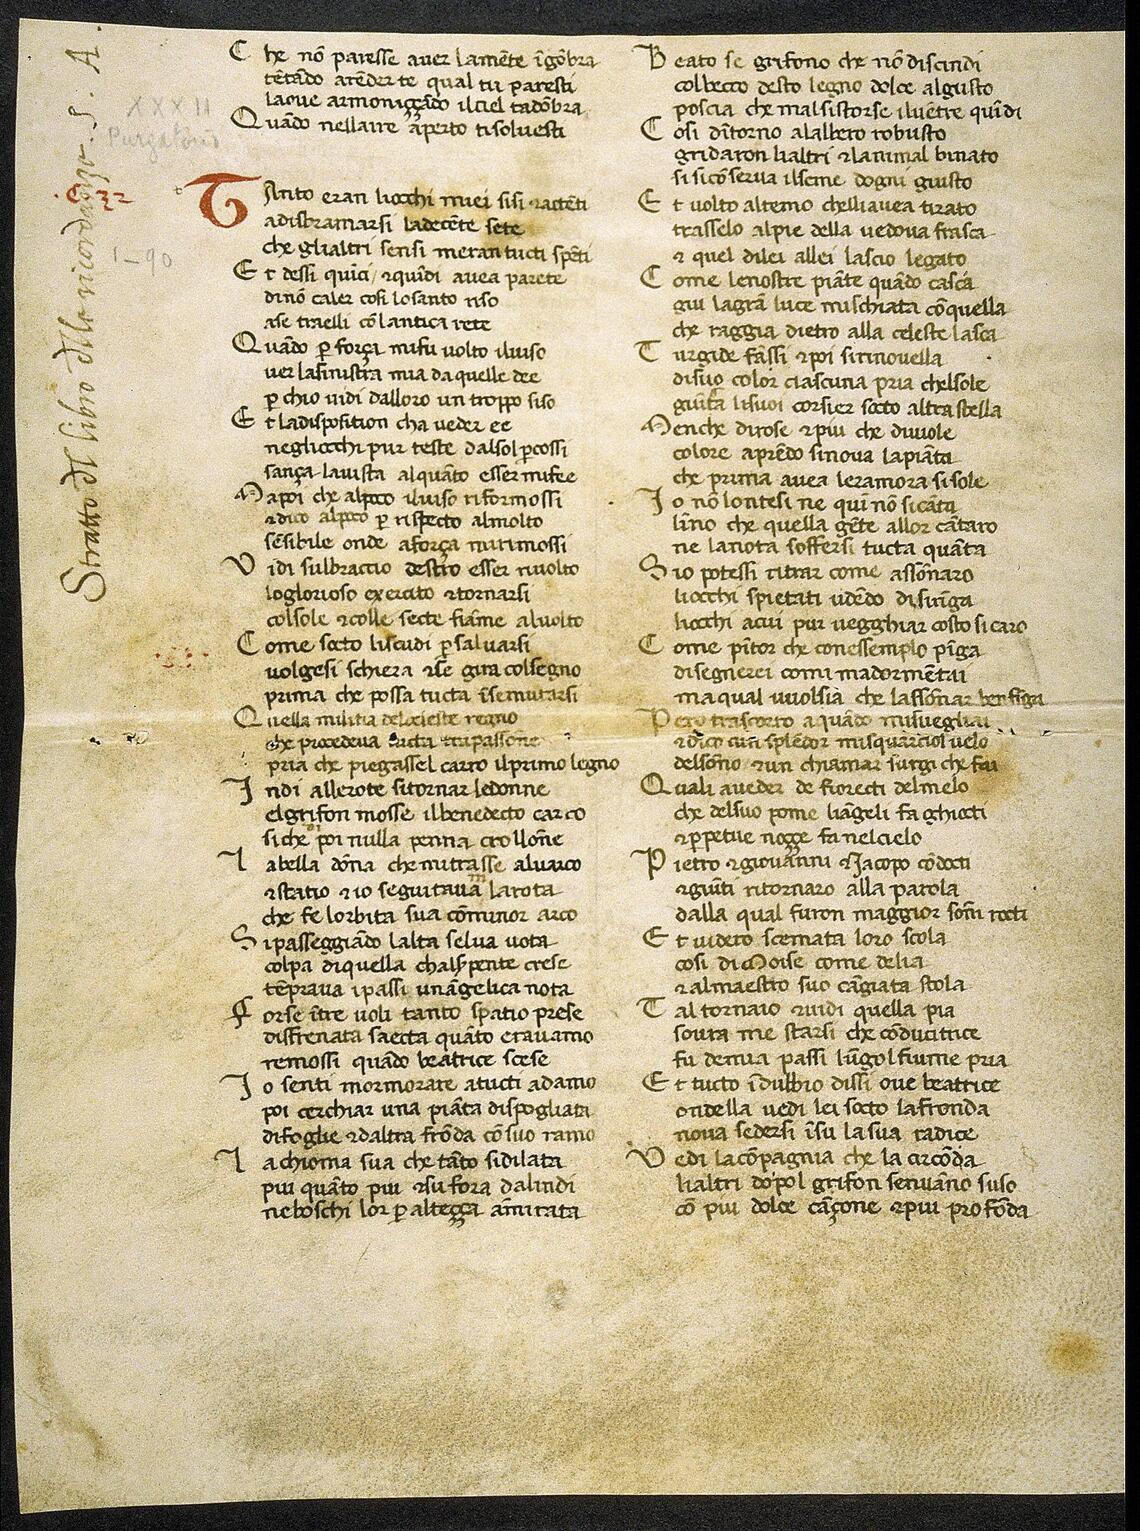 Stratto dl libro dlle ricordanze . s . A .
XXXII
Purgatorio
C 32
1–90
C he nō paresse auer lamēte īgōbra
tētādo arēder te qual tu paresti
laoue armoniççādo ilciel tadōbra
Quādo nellaire aperto tisoluesti
TAnto eran liocchi miei fisi ⁊attēti
adisbramarsi ladecēte sete
che glialtri sensi meran tucti spēti
E t dessi quici / ⁊quīdi auea parete
dinō caler cosi losanto riso
ase traeli cō lantica rete
Quādo ꝑ força mifu uolto iluiso
uer lasinistra mia da quelle dee
ꝑ chio uidi dalloro un troppo fiso
E t ladisposition cha ueder ee
negliocchi pur teste dalsol ꝑcossi
sança lauista alquāto esser mifee
Mapoi che alpoco iluiso riformossi
⁊dico alpoco ꝑ rispecto almolto
sēsibile onde aforça mirimossi
V idi sulbraccio destro esser riuolto
loglorioso exercito ⁊tornarsi
colsole ⁊colle secte fiāme aluolto
C ome socto liscudi ꝑ saluarsi
uolgesi schiera ⁊se gira colsegno
prima che possa tucta īsemutarsi
Quella militia delceleste regno
che procedeua tucta trapassone
pria che piegassel carro ilprimo legno
I ndi allerote sitornar ledonne
elgrifon mosse ilbenedecto carco
si che poi nulla penna crollōne
L abella dōna che mitrasse aluarco
⁊statio ⁊io seguitaua larota
che fe lorbita sua cō minor arco
S ipasseggiādo lalta selua uota
colpa diquella chalsꝑente crese
tēpraua ipassi unāgelica nota
F orse ītre uoli tanto spatio prese
disfrenata saecta quāto erauamo
remossi quādo beatrice scese
I o senti mormorare atucti adamo
poi cerchiar una piāta dispogliata
difoglie ⁊daltra frōda cō suo ramo
L achioma sua che tāto sidilata
piu quāto piu ⁊su fora dalindi
neboschi lor ꝑ alteçça āmirata
B eato se grifono che nō discindi
colbecco desto legno dolce algusto
poscia che malsistorse iluētre quīdi
C osi dītorno alalbero robusto
gridaron lialtri ⁊lanimal binato
si sicōserua ilseme dogni giusto
E t uolto altemo chelliauea tirato
trasselo alpie della uedoua frasca
⁊ quel dilei allei lascio legato
C ome lenostre piāte quādo casca
giu lagrā luce mischiata cō quella
che raggia dietro alla celeste lasca
T urgide fāssi ⁊poi sirinouella
disuo color ciascuna pria chelsole
giūta lisuoi corsier socto altra stella
Menche dirose ⁊piu che diuiole
colore aprēdo sinoua lapiāta
che prima auea leramora sisole
I o nō lontesi ne qui nō sicāta
līno che quella gēte allor cātaro
ne lanota soffersi tucta quāta
S io potessi ritrar come assōnaro
liocchi spietati udēdo di siringa
liocchi acui pur uegghiar costo si caro
C ome pītor che con essemplo pīga
disegnerei comi madormētai
ma qual uuolsia che lassōnar ben figa
Pero trascorro aquādo misuegliai
⁊dico cun splēdor misquarciol uelo
delsōno ⁊un chiamar surgi che fai
Quali aueder de fiorecti delmelo
che delsuo pome liāgeli fa ghiocti
⁊ꝑpetue noçze fa nelcielo
P ietro ⁊giouāni ⁊Jacopo cōdocti
⁊giūti ritornaro alla parola
dalla qual furon maggior sōni rocti
E t uidero scemata loro scola
cosi diMoise come delia
⁊almaestro suo cāgiata stola
T al tornaio ⁊uidi quella pia
soura me starsi che cōducitrice
fu demia passi lūgol fiume pria
E t tucto īdubbio dissi oue beatrice
ondella uedi lei socto lafronda
noua sedersi īsu la sua radice
V edi lacōpagnia che la circōda
lialtri dopol grifon senuāno suso
cō piu dolce cāçone ⁊piu profōda